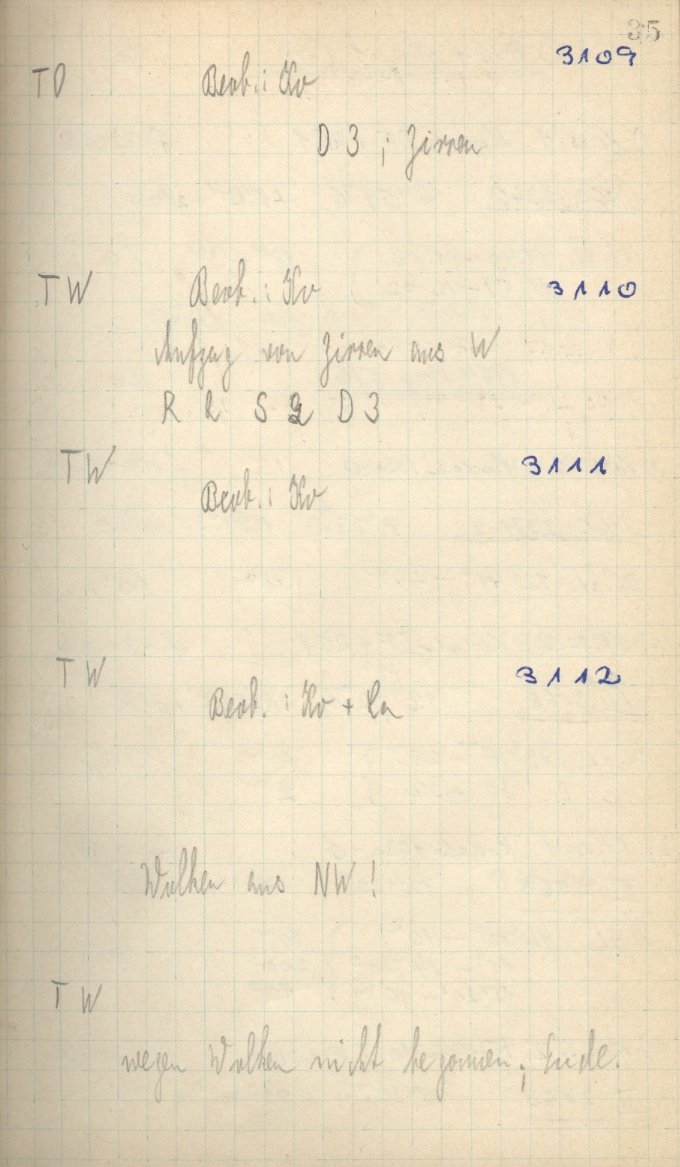 35
3109
TO Beob.: Ko
D 3 ; Zirren
TW Beob.: Ko 3110
Aufzug von Zirren aus W
R 2 S 2 D 3
TW 3111
Beob.: Ko
TW 3112
Beob.: Ko + La
Wolken aus NW !
TW
wegen Wolken nicht begonnen; Ende.